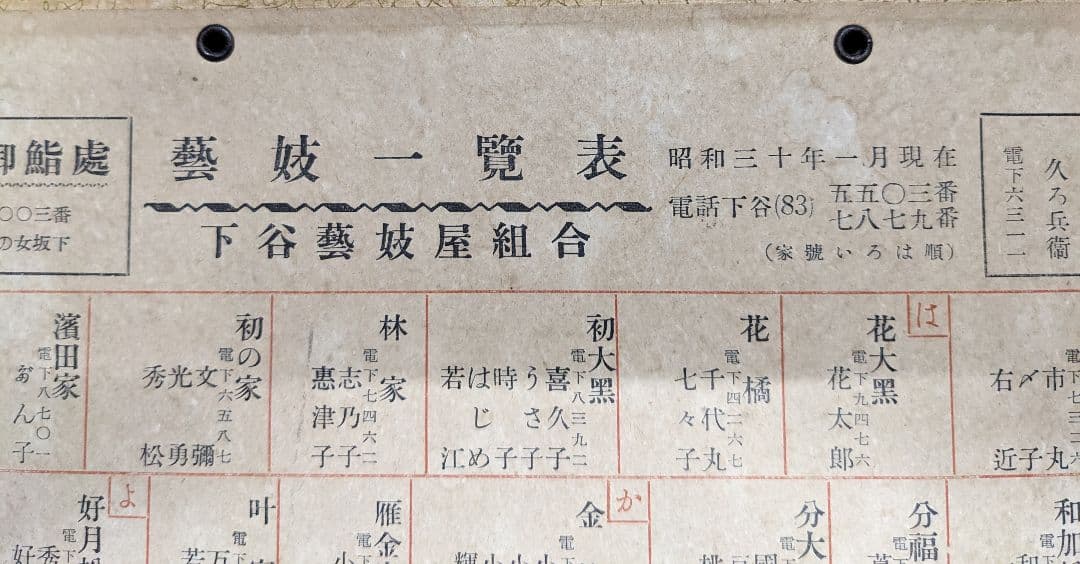 藝妓一覽表
下谷藝妓屋組合
昭和三十年一月現在
電話下谷(83)
五五〇三番
七八七九番
(家號いろは順)
久ろ兵衞
電下六三一一
御鮨處
〇〇三番
の女坂下
市丸
〆子
右近
は
花大黑
電下九四七六
花太郎
花橘
電下四二六七
千代丸
七々子
初大黑
電下八三九二
喜久子
うさ子
時子
はじめ
若江
林家
電下七四六二
志乃子
惠津子
初の家
電下六五八七
文彌
光勇
秀松
濱田家
電下八七〇一
ん子
和加
分福
電
分大
電
か
金
電
雁金
電下
叶
電下
よ
好月
電下